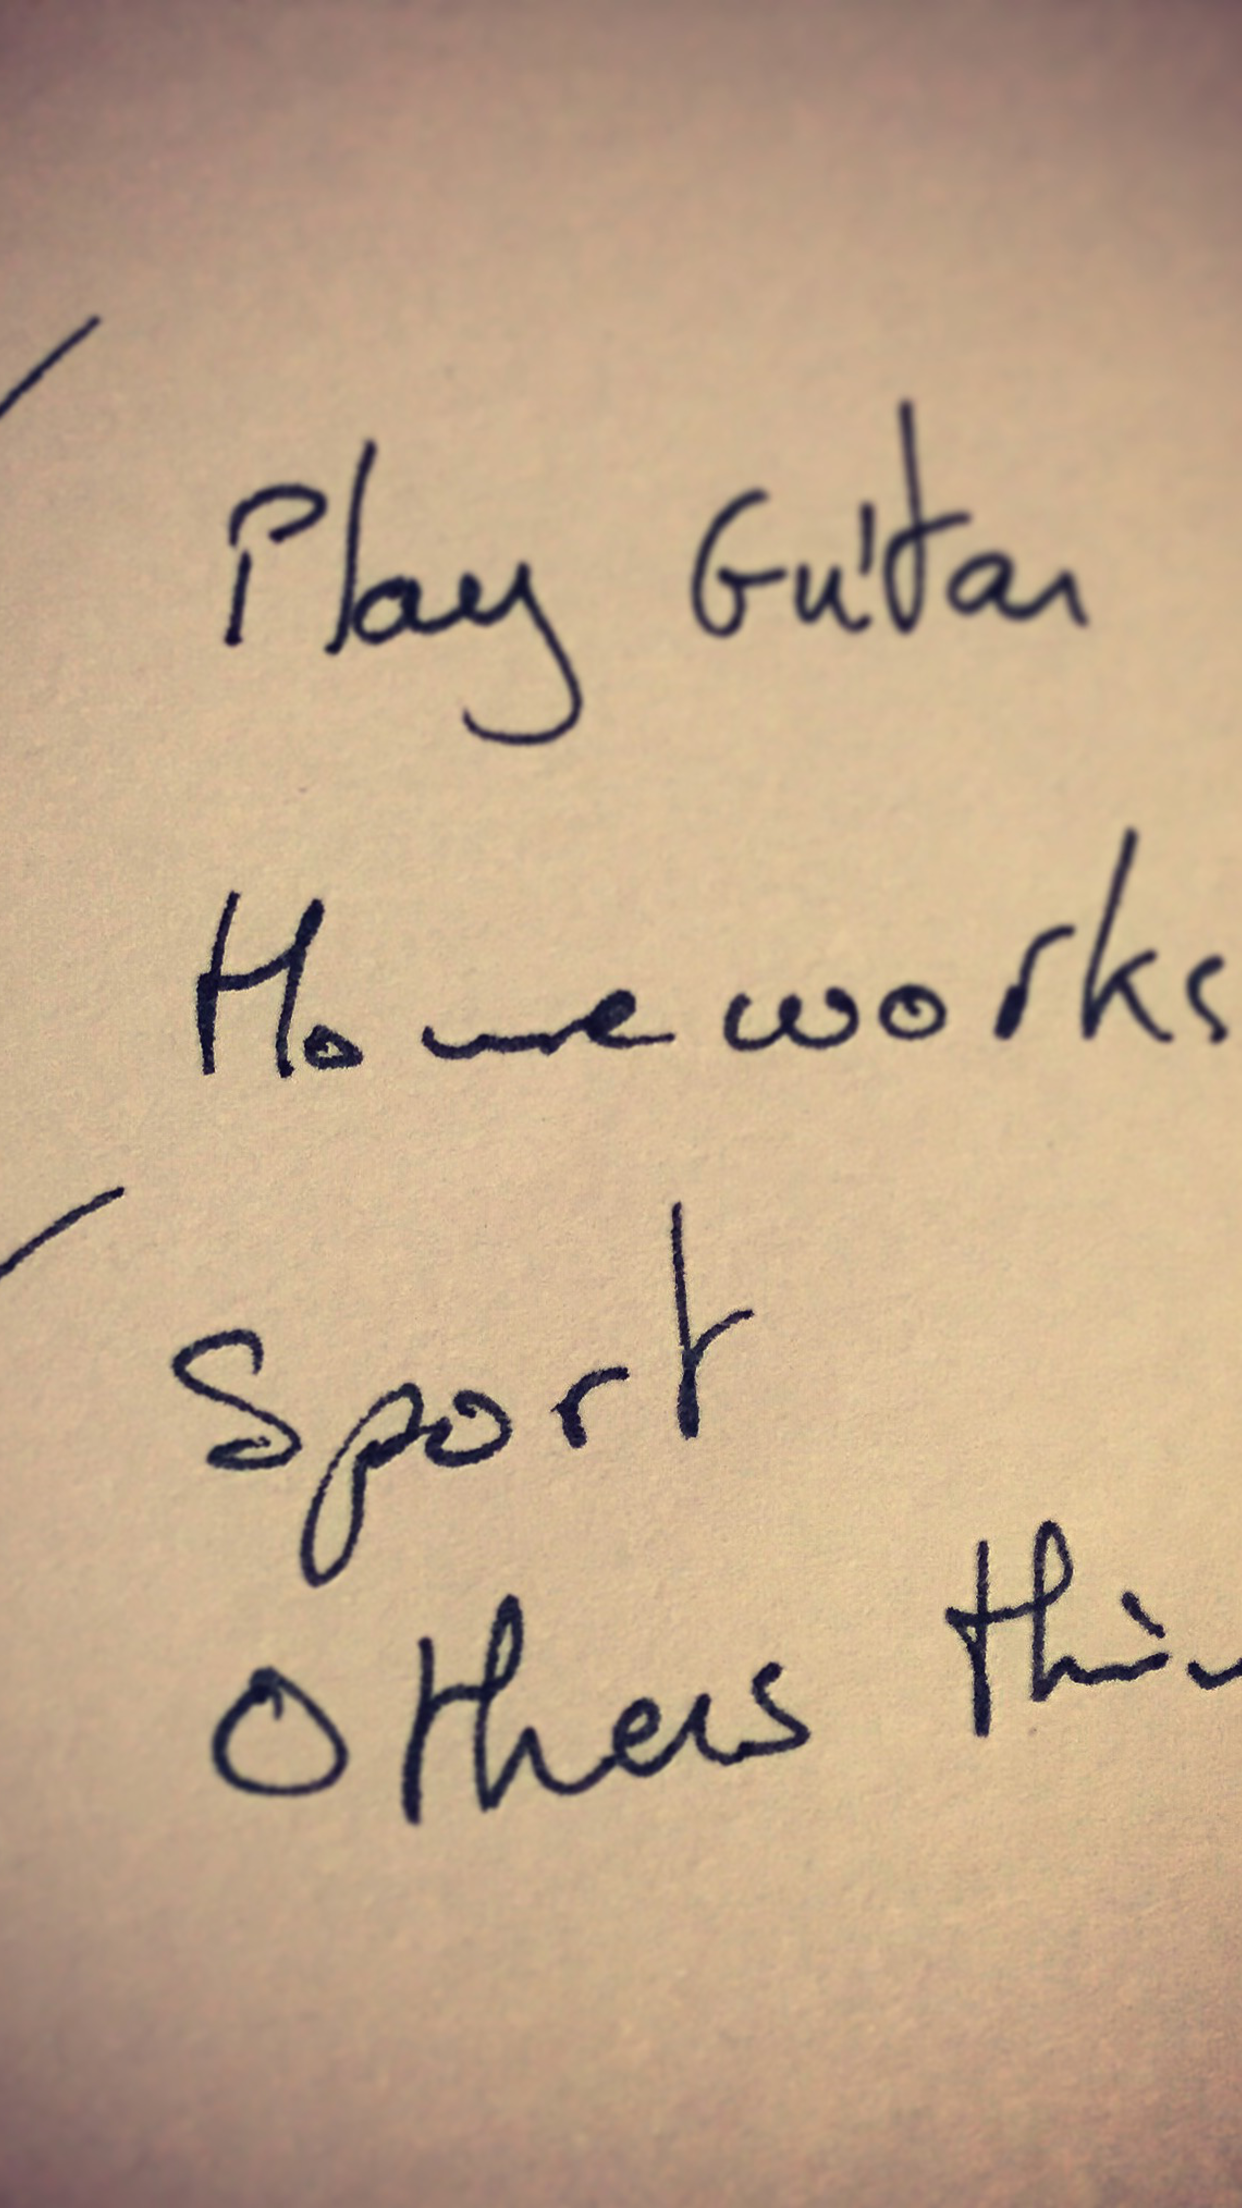 Play Guitar
Homeworks
Sport
Others thin